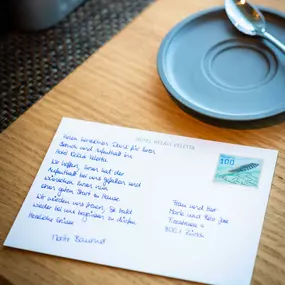 HOTEL RELAIS VELETTA
Einen herzlichen Dank für Ihren
Besuch und Aufenthalt im
Hotel Relais Veletta.
Wir hoffen, Ihnen hat der
Aufenthalt bei uns gefallen und
wünschen Ihnen nun
einen guten Start zu Hause.
Wir würden uns freuen, Sie bald
wieder bei uns begrüssen zu dürfen.
Herzliche Grüsse
100
Frau und Herr
Marie und
8001 Zürich